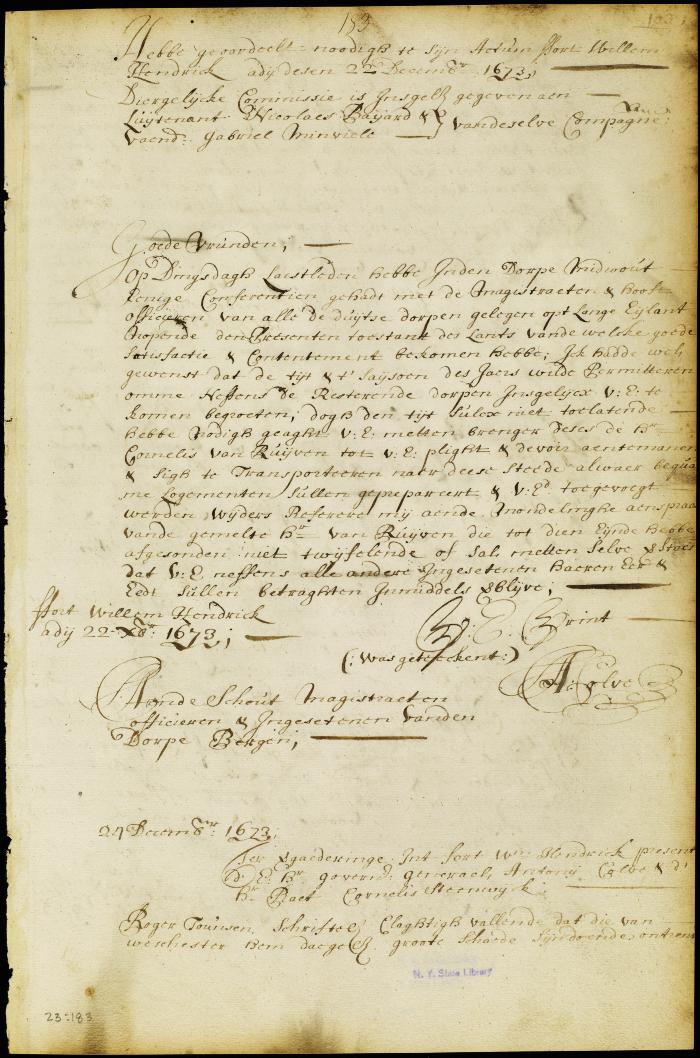 183
Hebbe geoordeelt noodigh te sijn Actum Fort Willem
Hendrick adij desen 22en Decembr 1673;
Diergelijcke Commissie is Insgelx gegeven aen
Luijtenant Nicolaes Bayard &
vaend: Gabriel Minviele
vandeselve Compagne:
Goede Vrunden;
Op Dingsdagh Laestleden hebbe Inden Dorpe Midwout
Eenige Conferentien gehadt met de Magistraeten & hooft
officieren van alle de duijtse dorpen gelegen opt Lange Eijlant
Nopende den Presenten toestant des Lants vande welcke goede
Satisfactie & Contentement bekomen hebbe; Ick hadde wel
gewenst dat de tijt & t' saijsoen des Jaers wilde Permitteren
omme Neffens de Resterende dorpen Insgelijcx v: E: te
komen begroeten; dogh den tijt sulcx niet toelatende
hebbe Nodigh geaght v: E: metten brenger deses de hr
Cornelis van Ruijven tot v: E: plight & devoir aentemanen
& sigh te Transporteeren naer deese steede alwaer bequa
me Logementen sullen geprepareert & v: Ed toegevoegt
werden, wijders Refereere mij aende Mondelinghe aenspraa
vande gemelte hr van Ruijven die tot dien Eijnde hebbe
afgesonden niet twijfelende of sal metten selve
dat v: E. neffens alle andere Ingesetenen haeren Eer &
Eedt sullen betraghten Inmiddels Verblijve;
Fort Willem Hendrick
adij 22 Xbr: 1673;
v: E. Vrint
(: was geteeckent:)
A. Colve
Aende Schout Magistraeten
officieren & Ingesetenen vanden
Dorpe Bergen;
24 Decembr 1673;
Ter Vergaederinge Int fort Wm Hendrick present
D: E: hr govern: generael, Antony Colve & d'
hr Raet Cornelis Steenwijck
Roger Tounsen Schriftel Claghtigh vallende dat die van
Weschester hem daegel groote schaede sijn doende
N. Y. State Library
23:183